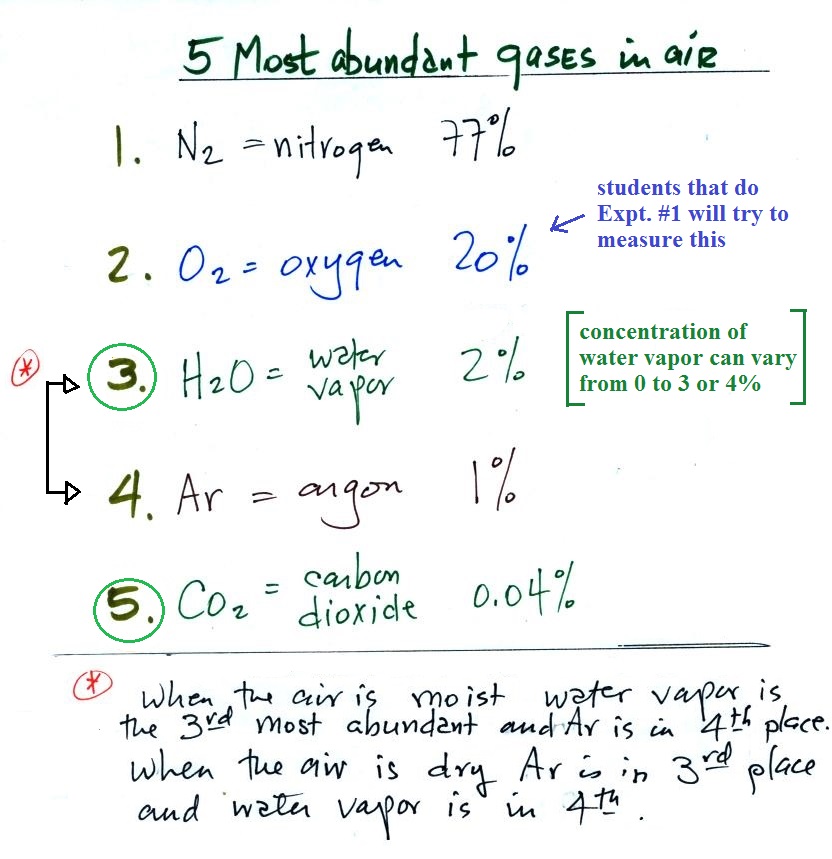 5 Most abundant gases in air
1. N2 = nitrogen 77%
students that do
Expt. #1 will try to
measure this
2. O2 = oxygen 20%
* 3. H2O = water vapor 2%
concentration of
water vapor can vary
from 0 to 3 or 4%
4. Ar = argon 1%
5. CO2 = carbon dioxide 0.04%
* When the air is moist water vapor is
the 3rd most abundant and Ar is in 4th place.
When the air is dry Ar is in 3rd place
and water vapor is in 4th.